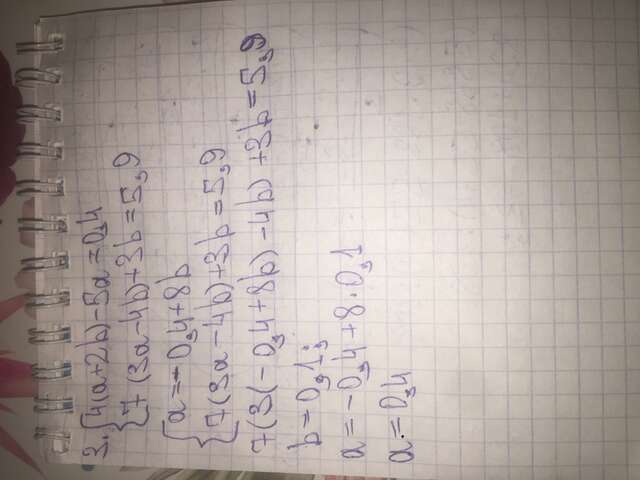 3. {4(a+2b)-5a=0,4
{7(3a-4b)+3b=5,9
{a=-0,4+8b
{7(3a-4b)+3b=5,9
7(3(-0,4+8b)-4b)+3b=5,9
b=0,1;
a=-0,4+8·0,1
a=0,4